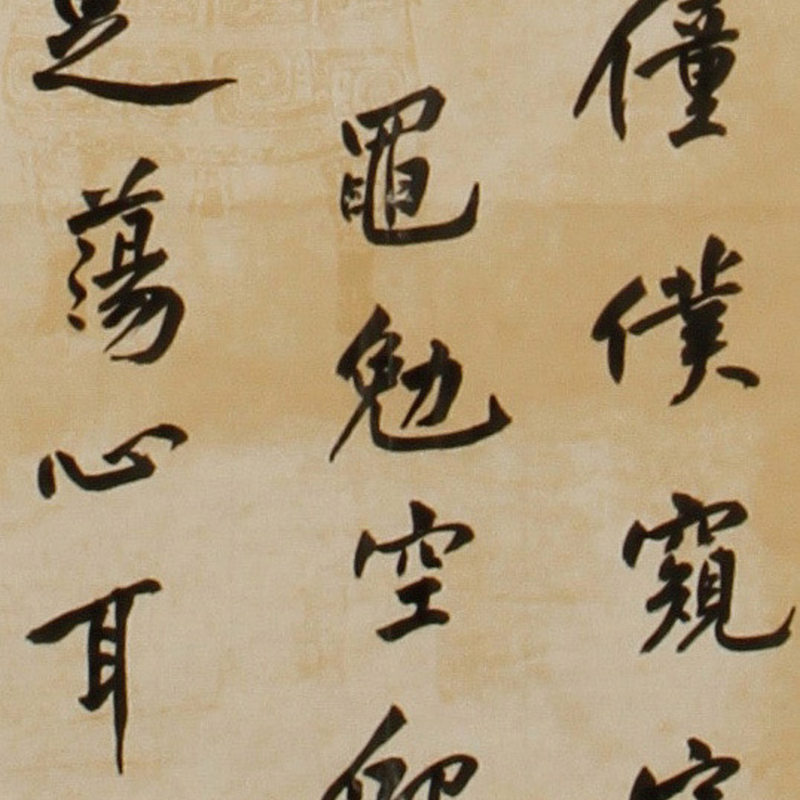 僮僕窺
黽勉空
足蕩心耳